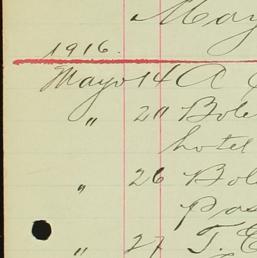 May
1916.
Mayo 14 A
" 20 Bole
hotel
" 26 Bol
pas
" 27 T. E